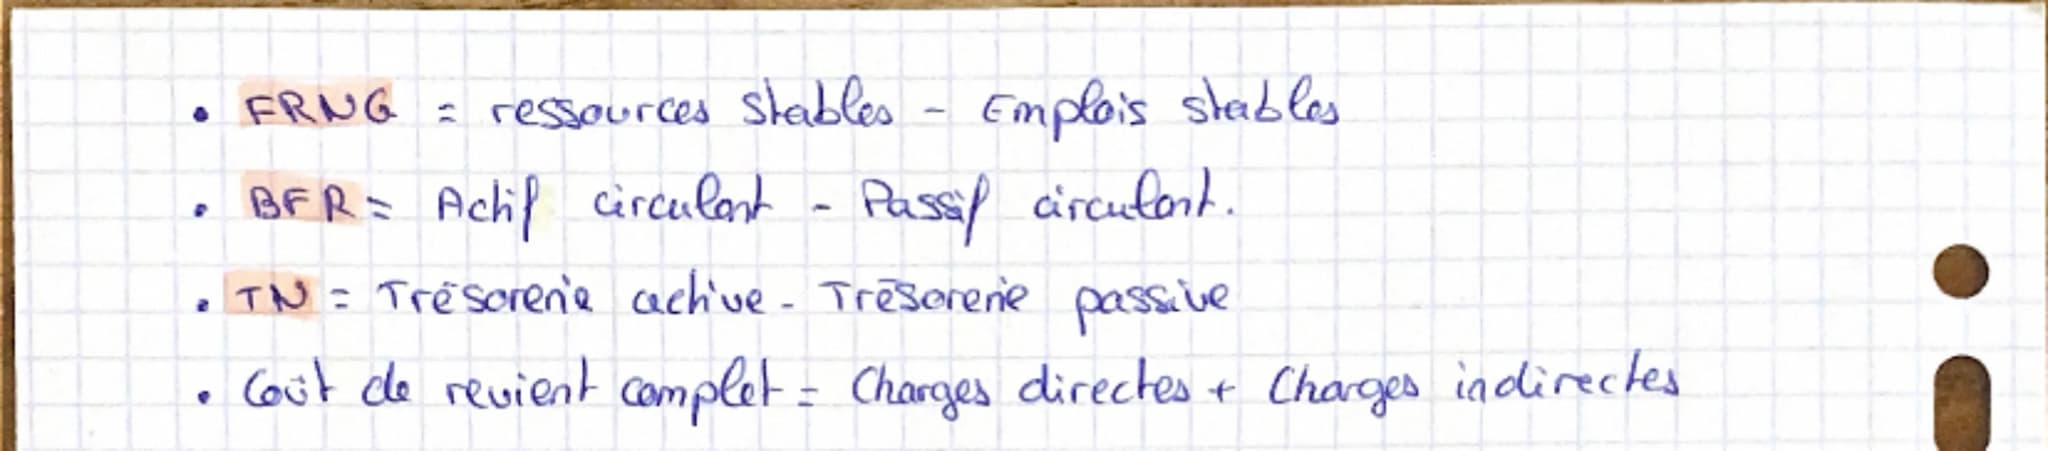 • FRNG = ressources stables - Emplois stables
• BFR = Actif circulant - Passif circulant.
• TN = Trésorerie active - Trésorerie passive
• Coût de revient complet = Charges directes + Charges indirectes